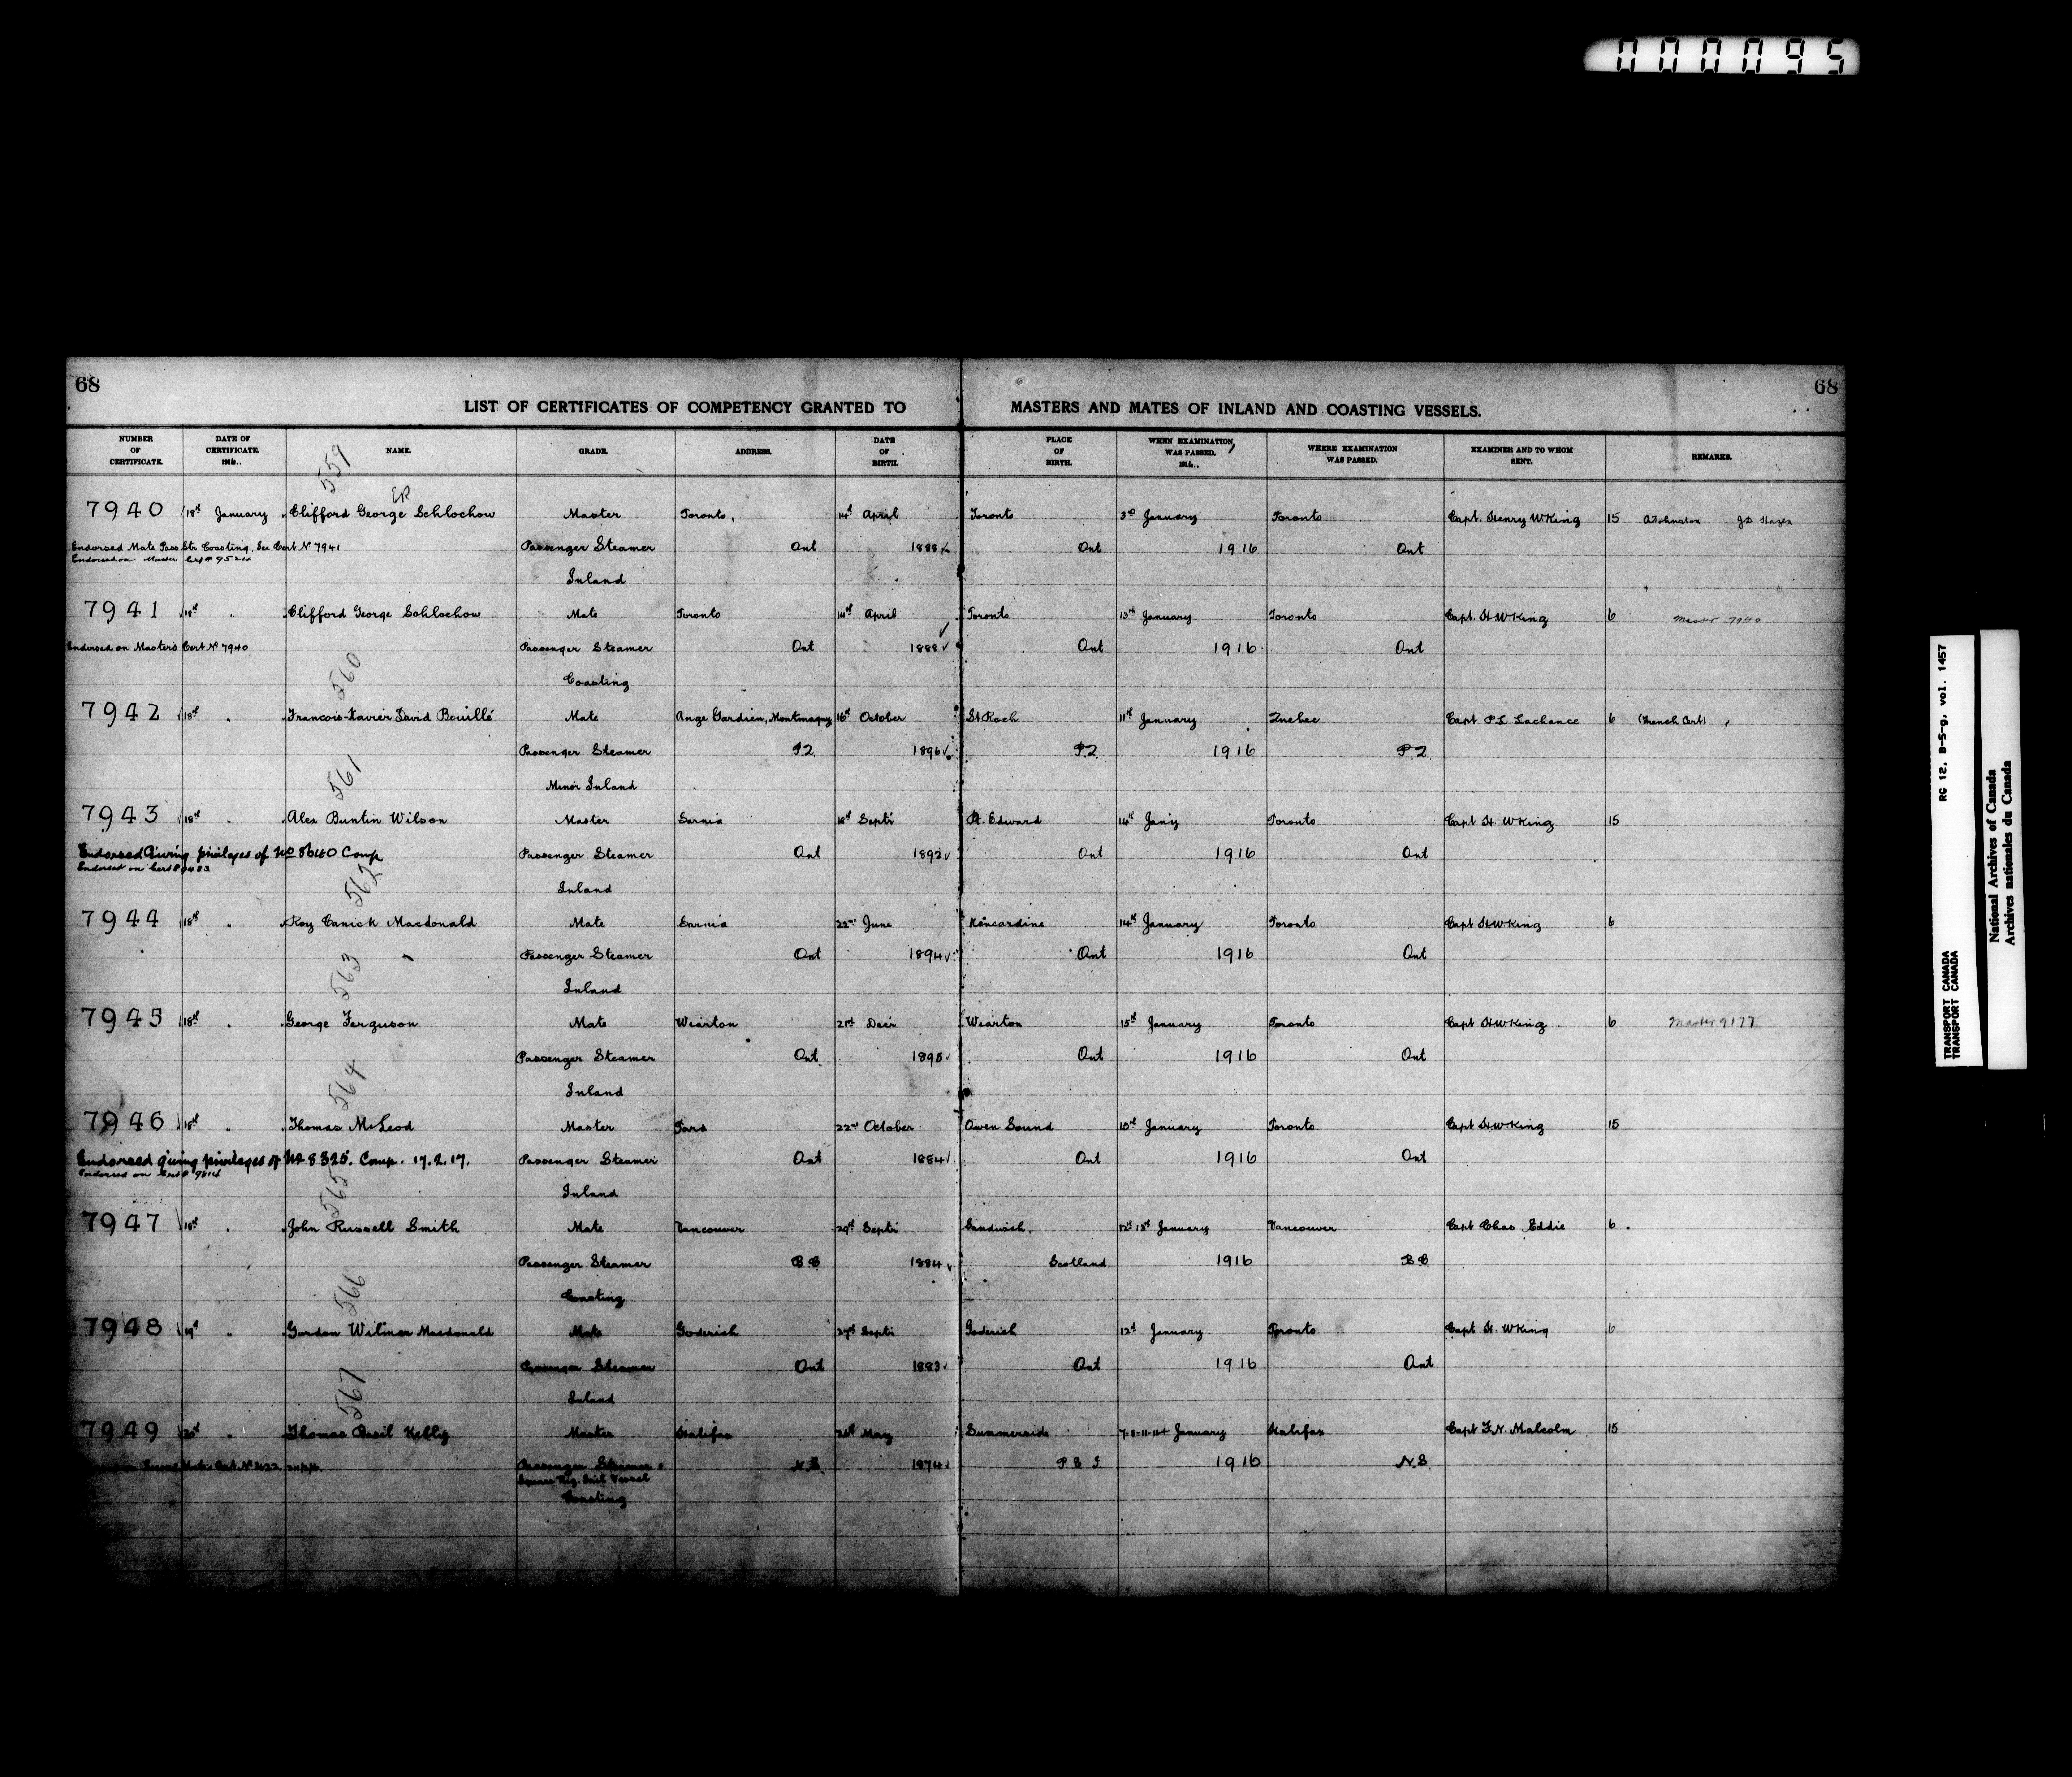 000095
68 68
LIST OF CERTIFICATES OF COMPETENCY GRANTED TO MASTERS AND MATES OF INLAND AND COASTING VESSELS.
NUMBER OF CERTIFICATE. DATE OF CERTIFICATE. 191 NAME. GRADE. ADDRESS. DATE OF BIRTH. PLACE OF BIRTH. WHEN EXAMINATION WAS PASSED. 191 WHERE EXAMINATION WAS PASSED. EXAMINER AND TO WHOM SENT. REMARKS.
559
7940 18th January Clifford George Schlochow Master Toronto, 14th April Toronto 3rd January Toronto Capt. Henry W King 15 A Johnston J D Hazen
Endorsed Mate Pass Str Coasting, See Cert No 7941 Passenger Steamer Ont 1888 Ont 1916 Ont
Endorsed on Master Cert #
Inland
7941 18th " Clifford George Schlochow Mate Toronto 14th April Toronto 13th January Toronto Capt. H W King 6 Master 7940
Endorsed on Masters Cert No 7940 Passenger Steamer Ont 1888 Ont 1916 Ont
560 Coasting
7942 18th " Francois-Xavier David Bouillé Mate Ange Gardien, Montmagny 16th October St Roch 11th January Quebec Capt P L Lachance 6 (French Cert)
Passenger Steamer P.Q 1896 P.Q 1916 P Q
561 Minor Inland
7943 18th " Alex Buntin Wilson Master Sarnia 18th Septr Pt. Edward 14th Jany Toronto Capt H. W King 15
Endorsed Giving privileges of No 8640 Comp Passenger Steamer Ont 1892 Ont 1916 Ont
Endorsed on Cert # 9483
562 Inland
7944 18th " Roy Canick Macdonald Mate Sarnia 22nd June Kincardine 14th January Toronto Capt H W King 6
Passenger Steamer Ont 1894 Ont 1916 Ont
563 Inland
7945 18th " George Ferguson Mate Wiarton 21st Decr Wiarton 15th January Toronto Capt H W King 6 Master 9177
Passenger Steamer Ont 1895 Ont 1916 Ont
564 Inland
7946 18th " Thomas McLeod Master Tara 22nd October Owen Sound 15th January Toronto Capt H W King 15
Endorsed giving privileges of No 8325. Comp. 17.2.17. Passenger Steamer Ont 1884 Ont 1916 Ont
Endorsed on Cert # 9614
565 Inland
7947 18th " John Russell Smith Mate Vancouver 29th Septr Sandwich, 12th 13th January Vancouver Capt Chas Eddie 6
Passenger Steamer B C 1884 Scotland 1916 B C
566 Coasting
7948 19th " Gordon Wilmer Macdonald Mate Goderich 27th Septr Goderich 12th January Toronto Capt H. W King 6
Passenger Steamer Ont 1883 Ont 1916 Ont
567 Inland
7949 20th " Thomas Basil Kelly Master Halifax 26th May Summerside 7-8-11-12th January Halifax Capt F. N. Malcolm 15
Passenger Steamer & N.S. 1874 P E I 1916 N.S.
Square Rig. Sail Vessel
Coasting
TRANSPORT CANADA RG 12, B-5-g, vol. 1457
TRANSPORT CANADA
National Archives of Canada
Archives nationales du Canada